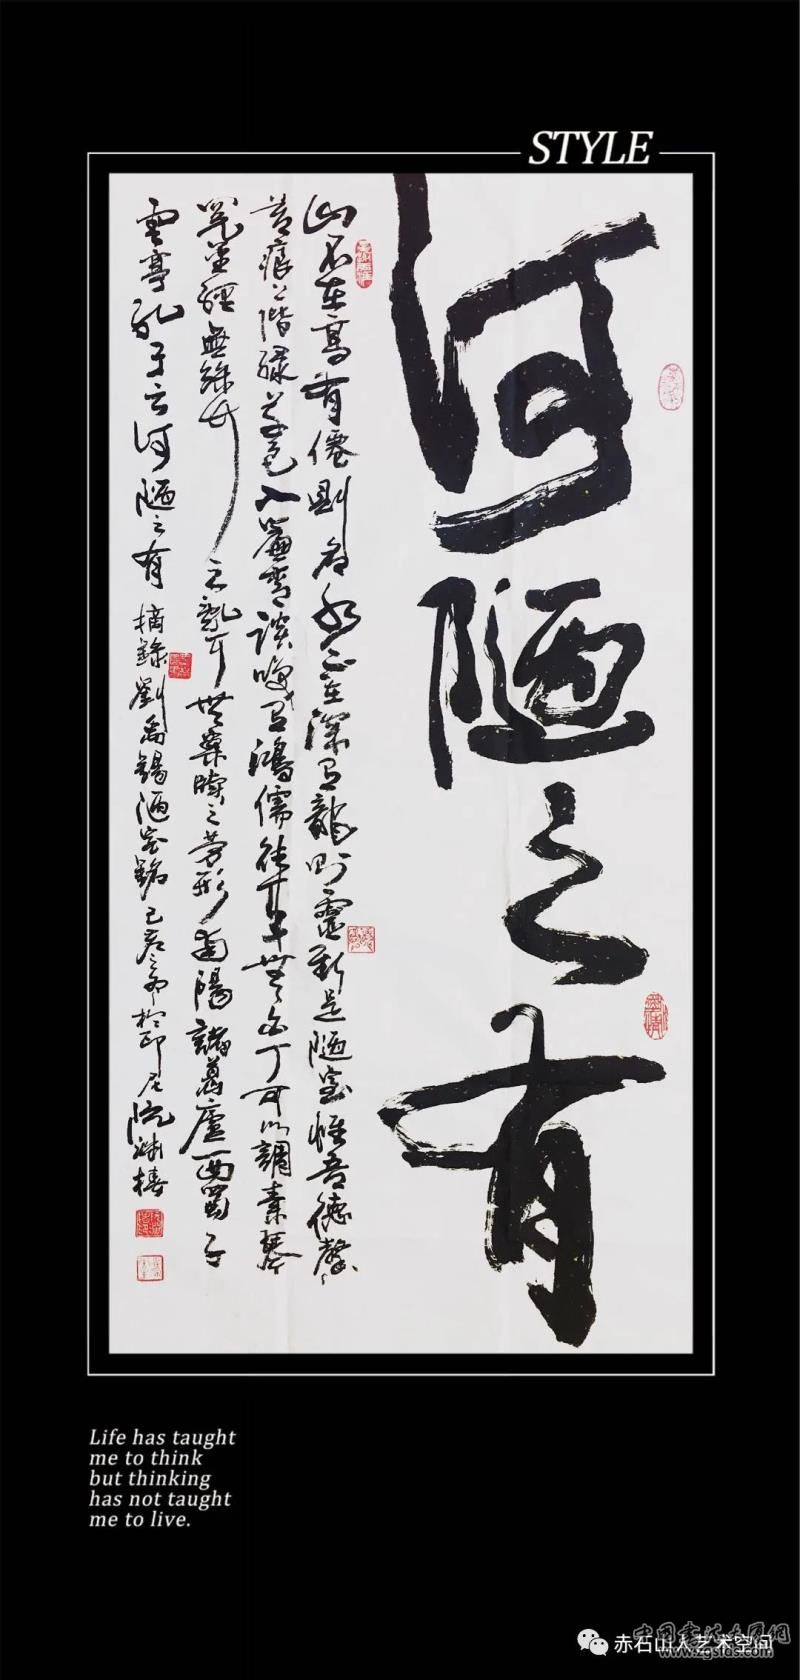 STYLE
何陋之有
山不在高有僊則名水不在深有龍則靈斯是陋室惟吾德馨
苔痕上階緑草色入簾青談笑有鴻儒往來無白丁可以調素琴
閱金經無絲竹之亂耳無案牘之勞形南陽諸葛廬西蜀子
雲亭孔子云何陋之有 摘錄劉禹錫陋室銘己亥
Life has taught
me to think
but thinking
has not taught
me to live.
赤石山人艺术空间
中国书法大展网
www.zgsfds.com